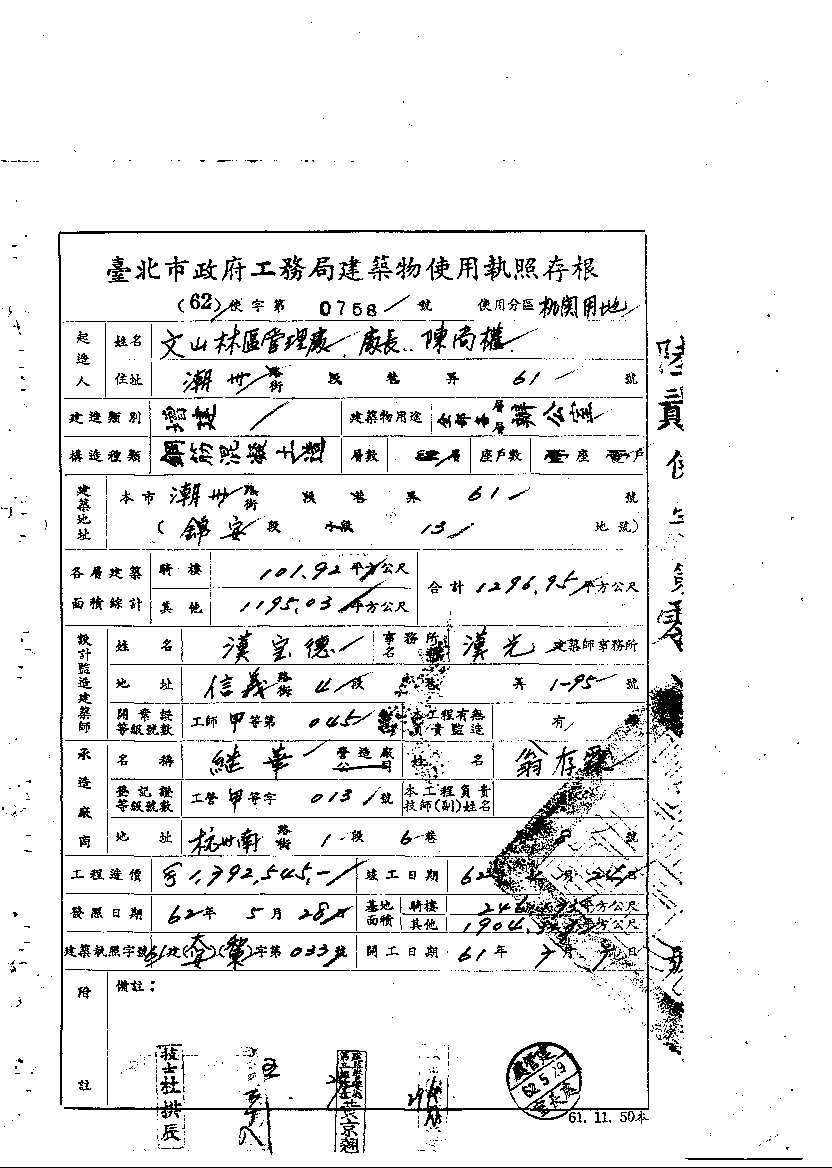 臺北市政府工務局建築物使用執照存根
(62)使字第 0758 號 使用分區 机関用地
起造人 姓名 文山林區管理處 處長 陳尚權
住址 潮州 路街 段 巷 弄 61 號
建造類別 增建 建築物用途 全部各層 辦公室
構造種類 鋼筋混凝土造 層數 層 座戶數 座 戶
建築地址 本市 潮州 路街 段 巷 弄 61 號
(錦安段 小段 13 地號)
各層建築面積綜計 騎樓 101.92 平方公尺 合計 1296.95 平方公尺
其他 1195.03 平方公尺
設計監造建築師 姓名 漢宝德 事務所名稱 漢光 建築師事務所
地址 信義 路街 4 段 巷 弄 1-95 號
開業證等級號數 工師 甲 等第 045 號 本工程有無負責監造 有
承造廠商 名稱 継華 營造廠公司 姓名 翁存
登記證等級號數 工營 甲 等字 013 號 本工程負責技師(副)姓名
地址 杭州南 路街 1 段 6 巷 8 號
工程造價 1,392,545.- 竣工日期 62年 月 日
發照日期 62年 5月 28日 基地面積 騎樓 平方公尺
其他 平方公尺
建築執照字號 61建(大安)( )字第 033 號 開工日期 61年 月 日
附註 備註:
技士杜拱辰
62.5.29
61.11.50本